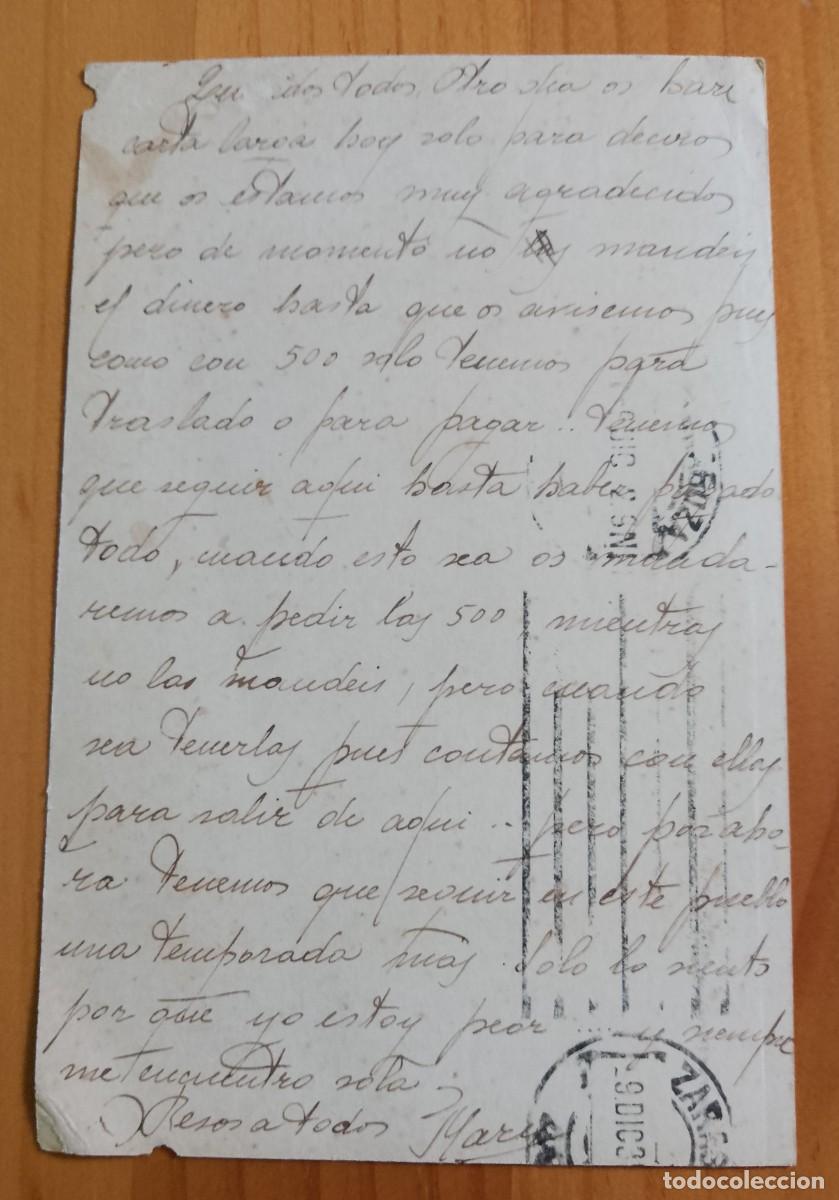 Queridos todos. Otro dia os hare
carta larga hoy solo para deciros
que os estamos muy agradecidos
pero de momento no mandeis
el dinero hasta que os avisemos pues
como con 500 solo tenemos para
traslado o para pagar.. tenemos
que seguir aqui hasta haber pagado
todo, cuando esto sea os manda-
remos a pedir las 500, mientras
no las mandeis, pero cuando
sea tenerlas pues contamos con ellas
para salir de aqui .. pero por aho-
ra tenemos que seguir en este pueblo
una temporada mas. Solo lo siento
por que yo estoy peor y siempre
me encuentro sola.
Besos a todos Maria
9 DIC 3
ZARAG
todocoleccion